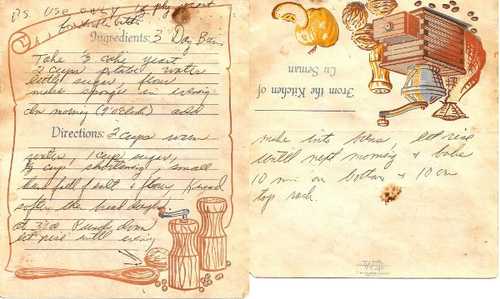 P.S. use only
Ingredients: 3 Day Buns
Take ½ cake yeast
2 cups potato water
little sugar, flour
make sponge in evening
In morning (9 o'clock) add
Directions: 2 cups warm
water, 1 cup sugar,
½ cup shortening, small
hand full salt & flour. Knead
after the bread
at 3:30 Punch down
let rise until evening
From the Kitchen of
Lu Seman
make into buns, let rise
until next morning & bake
10 min on bottom & 10 on
top rack.